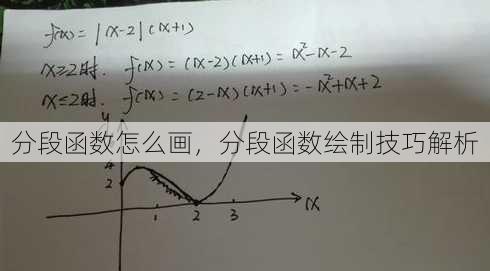 f(x) = |x-2|(x+1)
x≥2时. f(x) = (x-2)(x+1) = x²-x-2
x≤2时. f(x) = (2-x)(x+1) = -x²+x+2
y
分段函数怎么画，分段函数绘制技巧解析
4
2
1 2 3 x